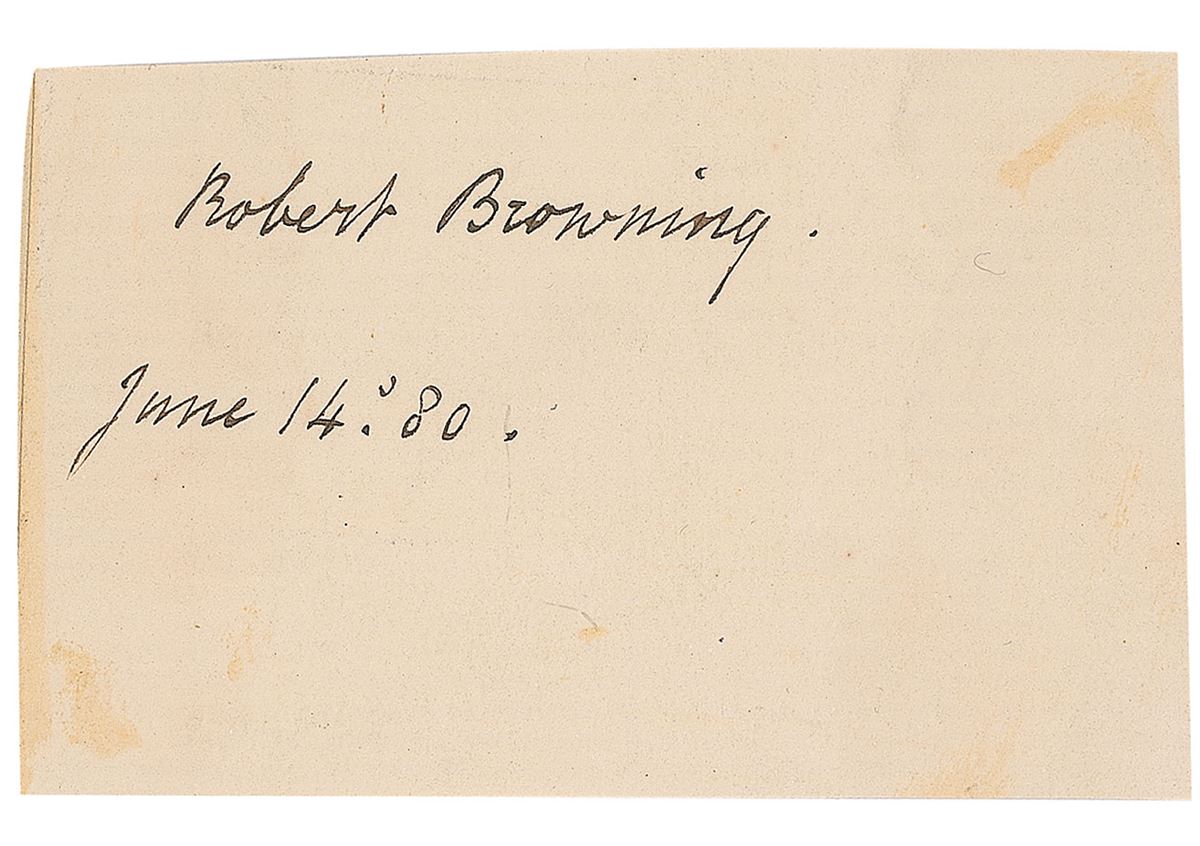 Robert Browning.
June 14.' 80.